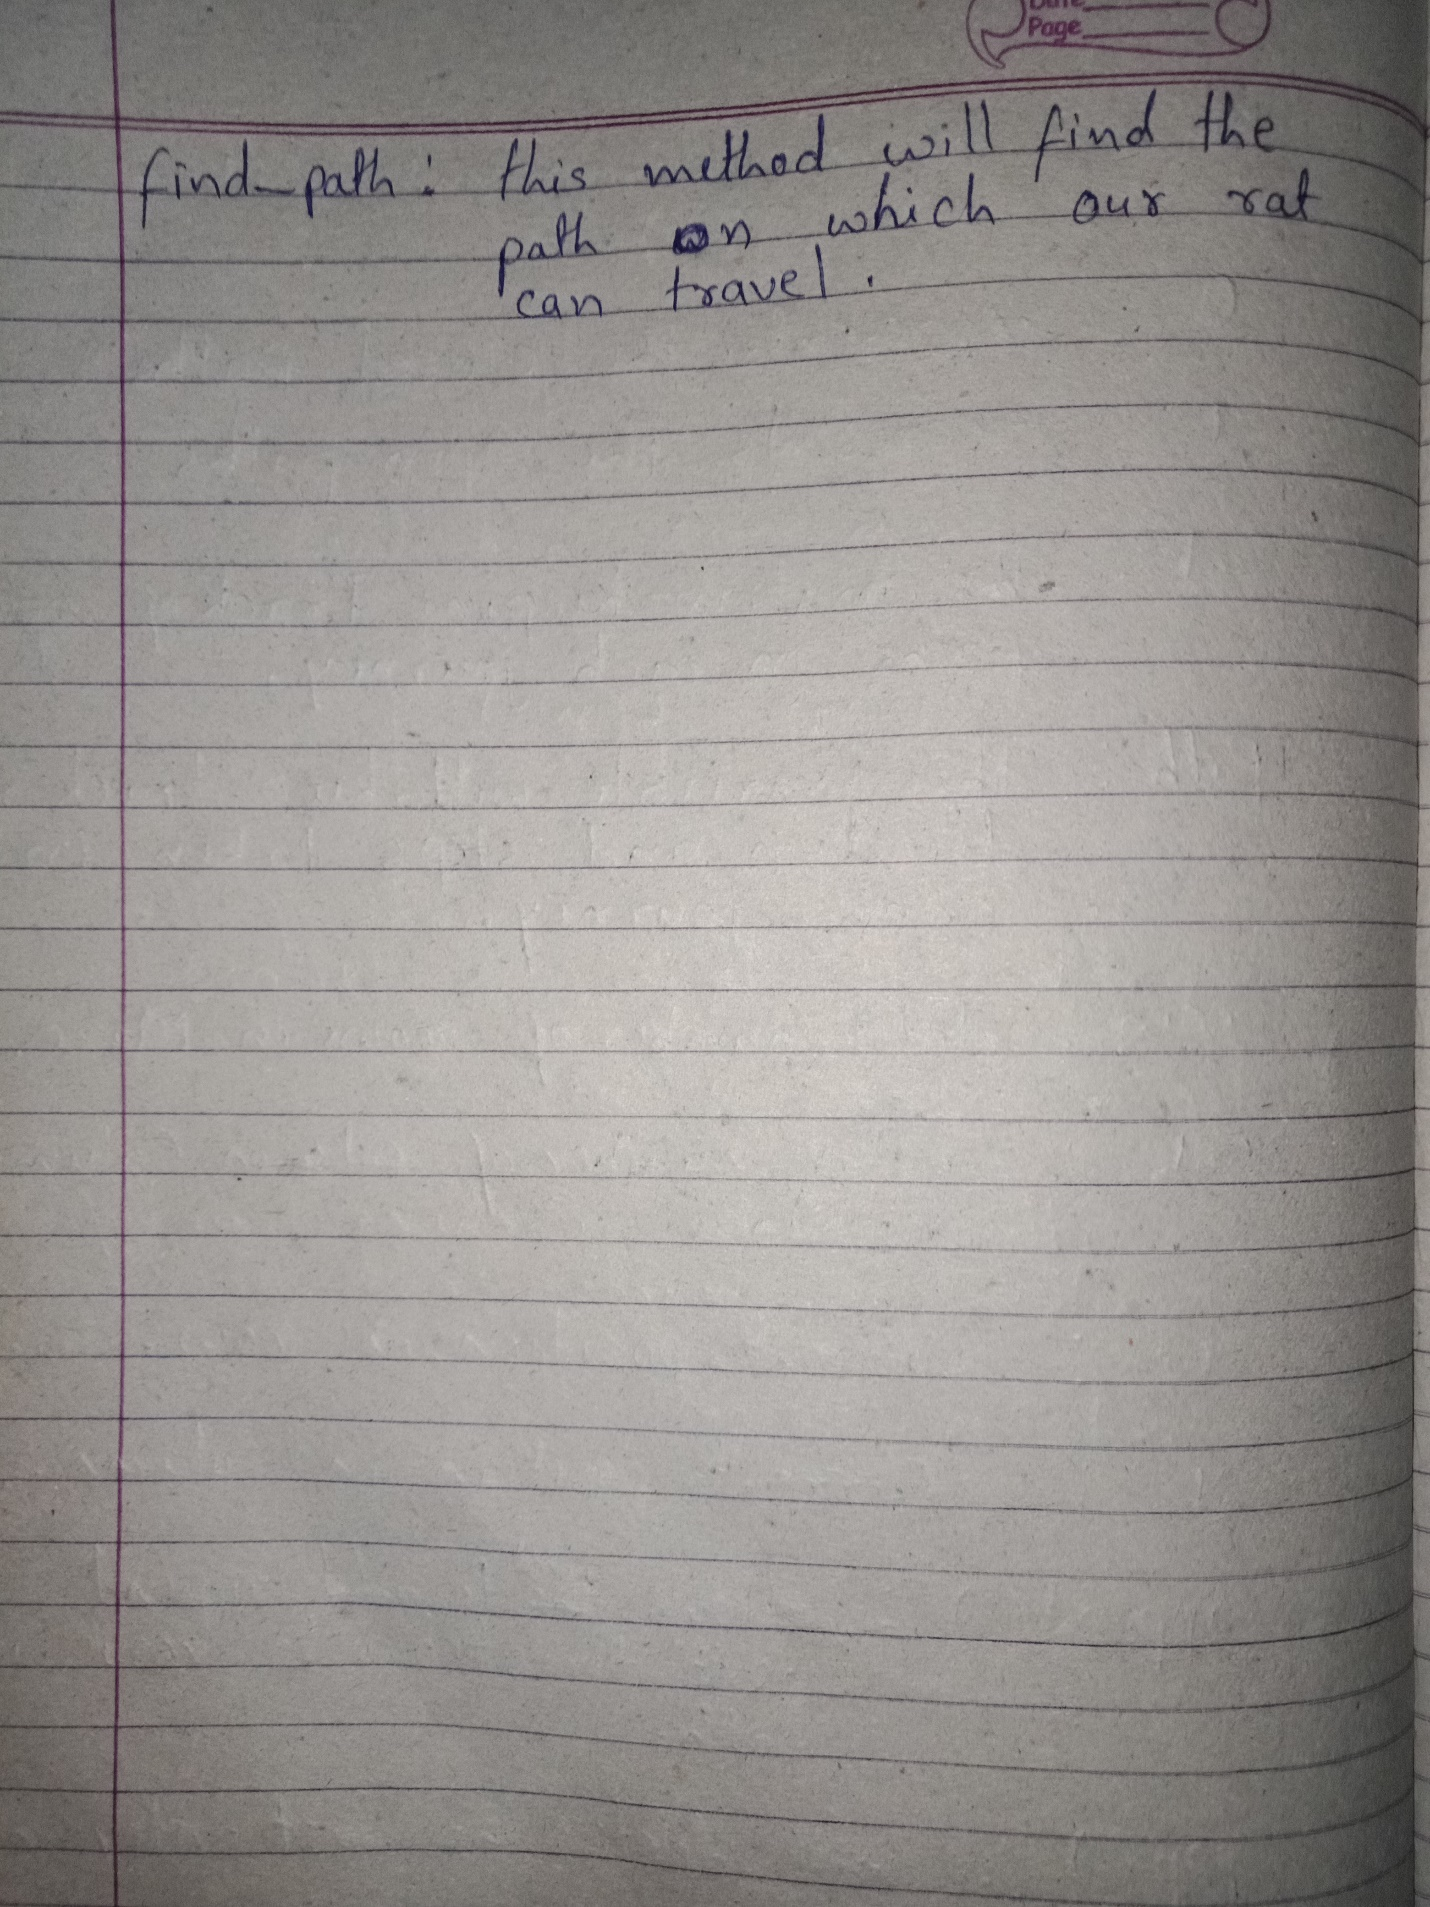 Date
Page
find_path: this method will find the
path on which our rat
can travel.